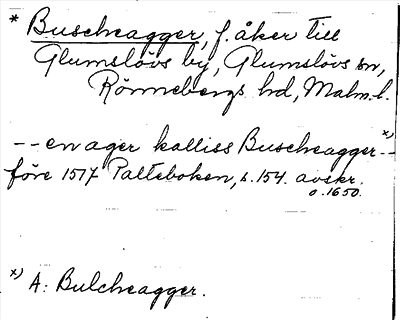 * Buscheagger, f. åker till
Glumslövs by, Glumslövs sn,
Rönnebergs hd, Malm. l.
-- en ager kalliss Buscheagger x) --
före 1517 Palteboken, s. 154. avskr.
o. 1650.
x) A: Bulcheagger.